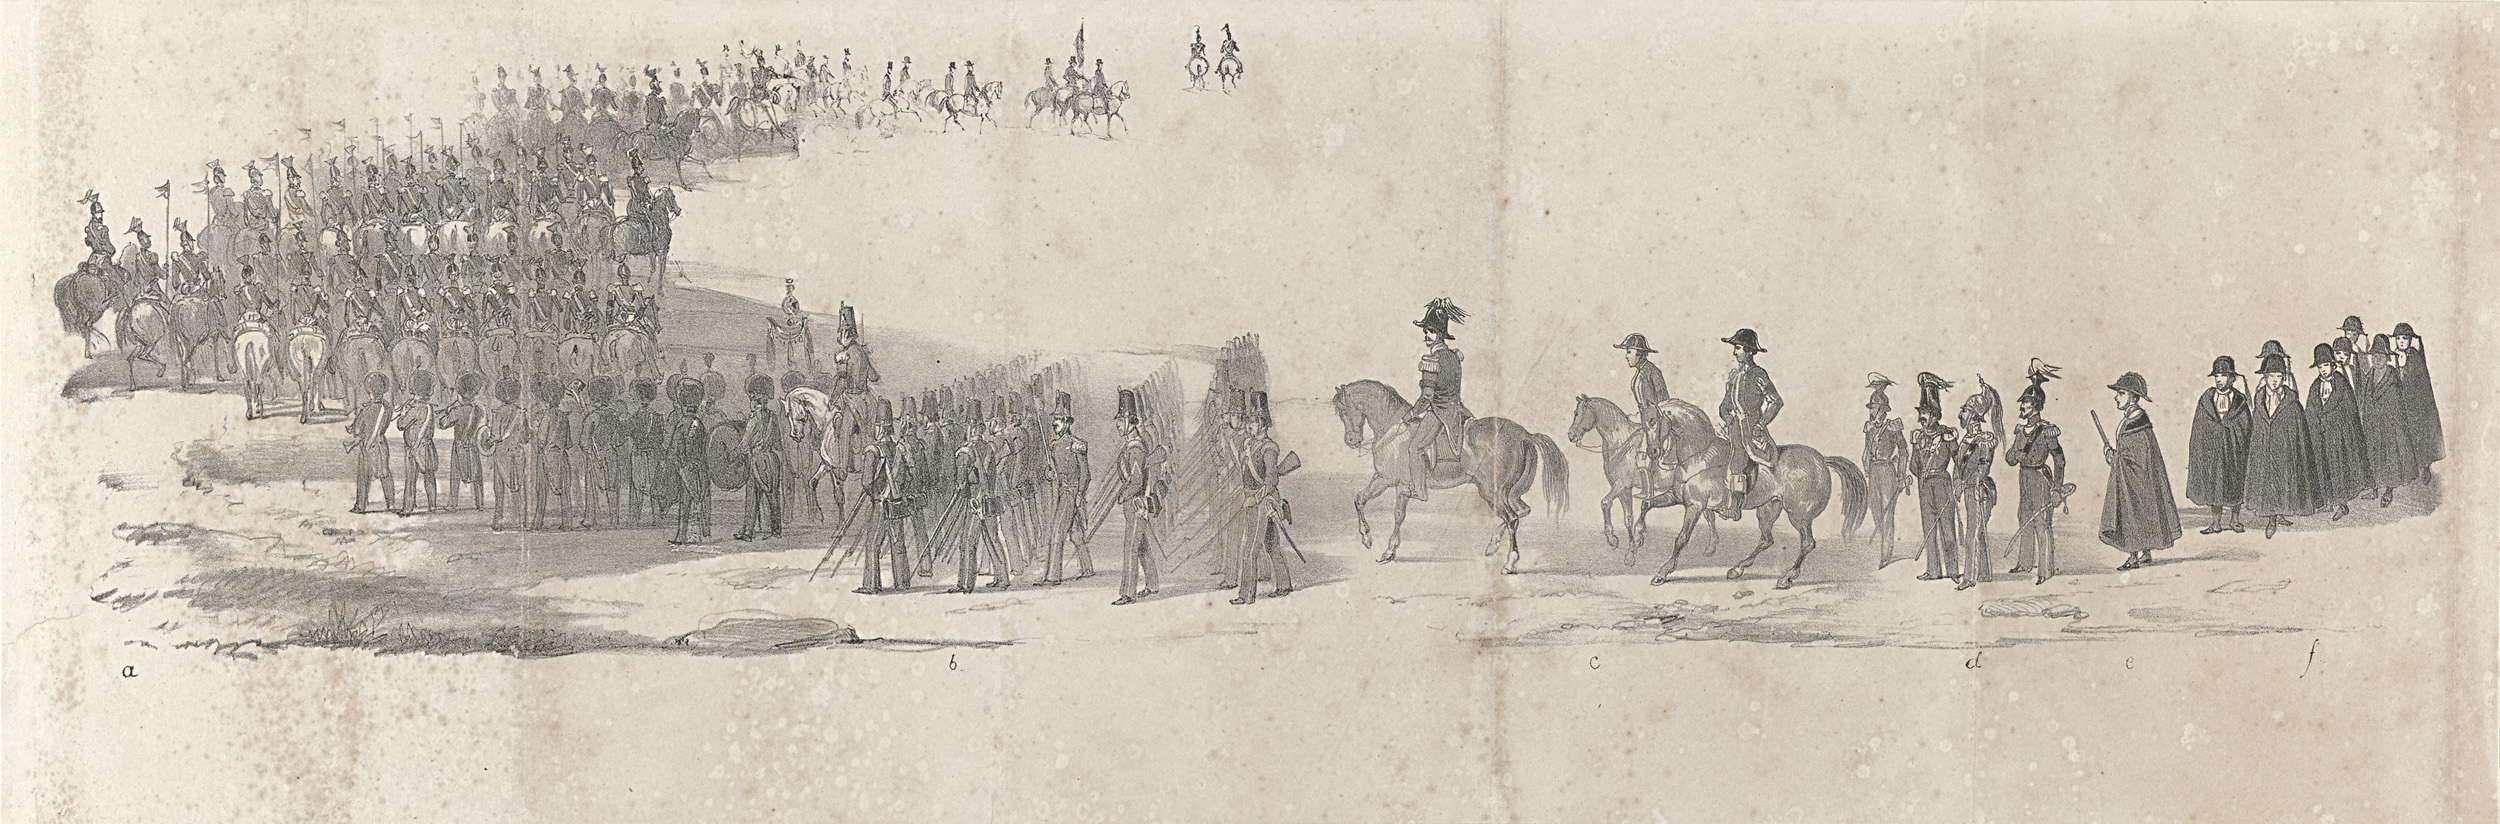 a b. c d e f.